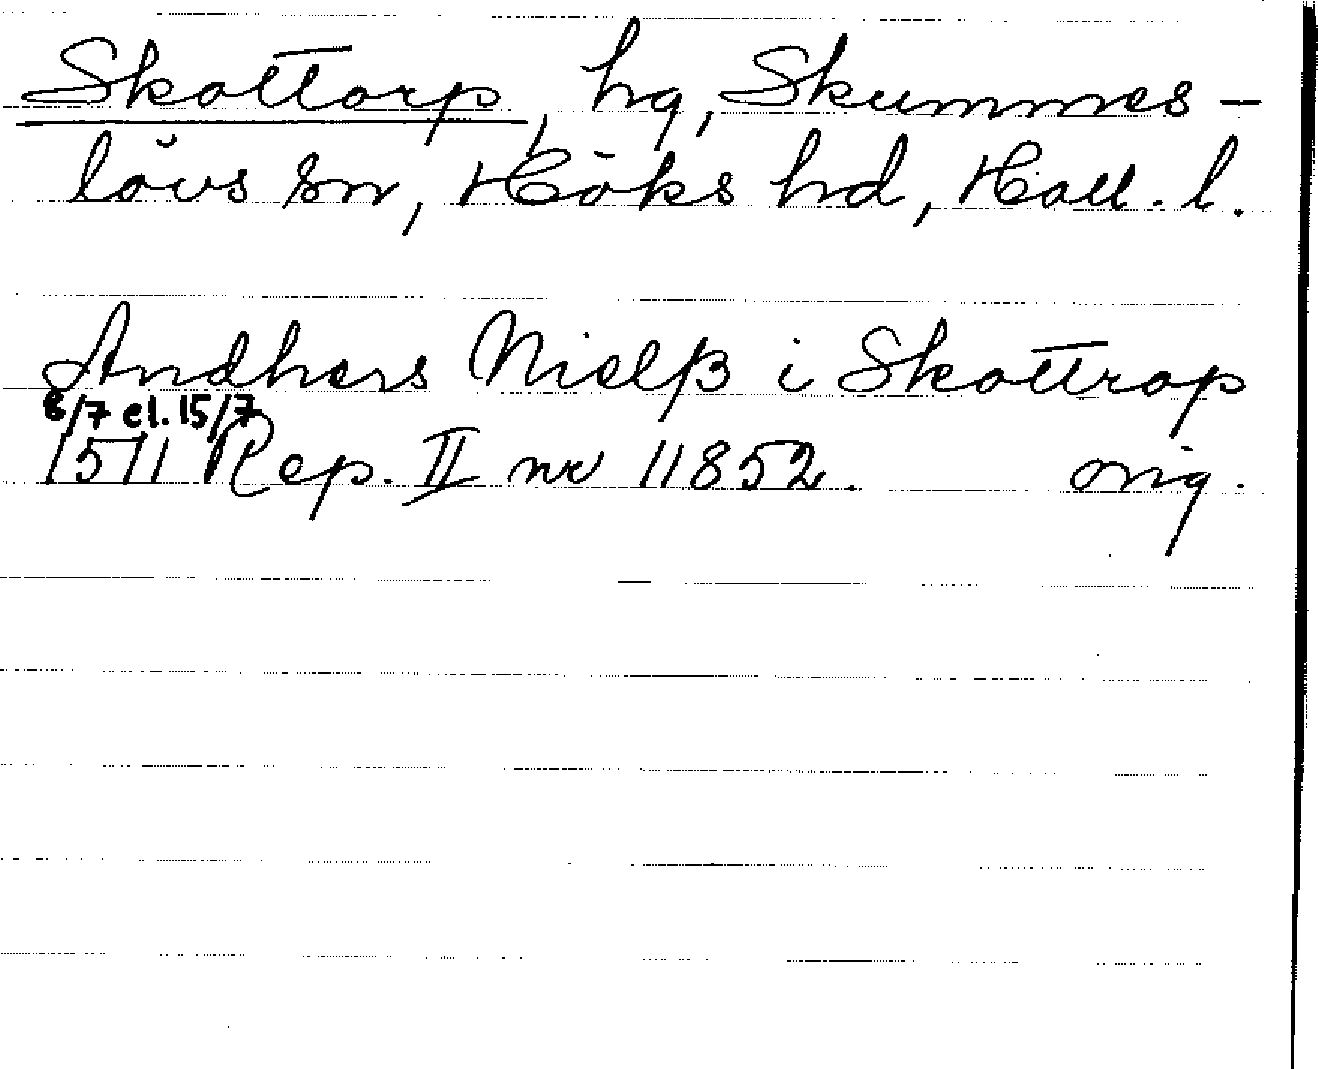 Skottorp, hg, Skummes-
lövs sn, Höks hd, Hall. l.
Andhers Nielß i Skottrop
8/7 el. 15/7
1571 Rep. II nr 11852. orig.